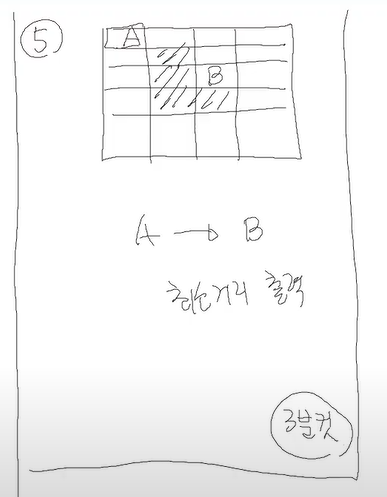 ⑤
A
B
A → B
최소거리 출력
3분컷